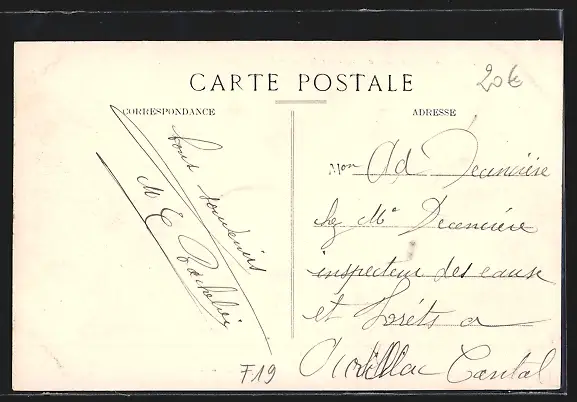 CARTE POSTALE
20€
CORRESPONDANCE
ADRESSE
Bons souvenirs
M E Bachelier
Mon Ad Decencière
chez Mr Decencière
inspecteur des eause
et foréts a
Aurillac Cantal
F19